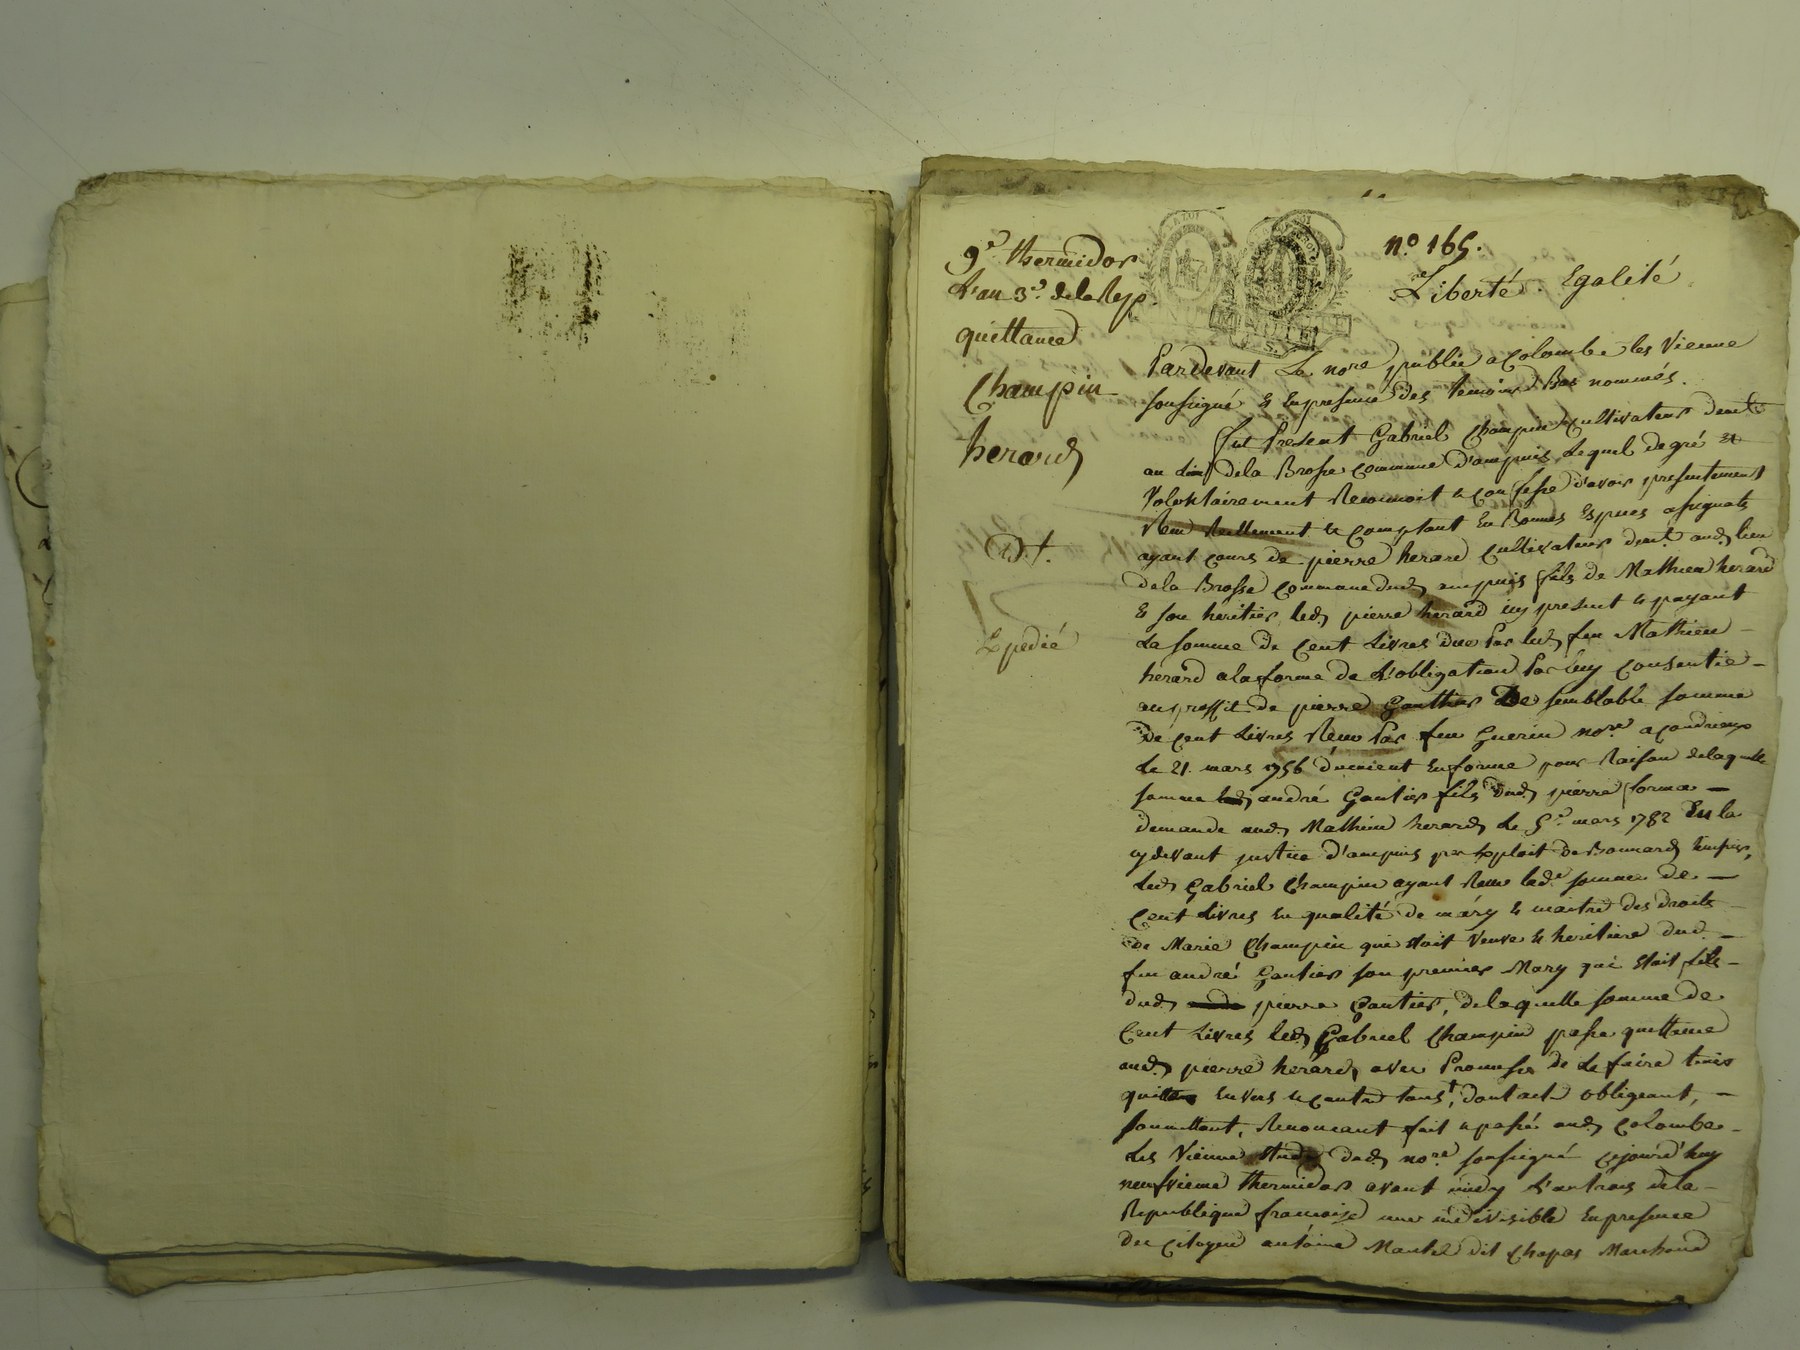 9e thermidor
L'an 3e. de la Rep.
quittance
Champin
herard
Expedié
no. 165.
Liberté. Egalité
Pardevant Le nore publiq a Colombe les Vienne
soussigné & En presence des temoins Bas nommés.
fut Present Gabriel Champin Cultivateur demt
au lieu dela Brosse Commune d'ampuis, Lequel de gré et
Volontairement Reconnoit & confesse d'avoir presentement
Reçu Reellement & comptant En Bonnes Espèces assignats
ayant cours de pierre herard Cultivateur demt. aud. lieu
dela Brosse Commune dud. ampuis fils de Mathieu herard
& son heritier, led. pierre herard icy present & payant
La somme de Cent Livres due Par led. feu Mathieu
herard a la forme de L'obligation Par luy Consentie
au proffit de pierre Gauthier De semblable somme
De Cent Livres Reçu Par feu Guerin nore. a Condrieux
Le 21. mars 1756 duement En forme pour Raison de laquelle
somme andré Gautier fils dud. pierre forma
demande aud. Mathieu herard Le 5e. mars 1782 En la
cydevant justice d'ampuis par Exploit de Bonnard huissier,
Led. Gabriel Champin ayant Reçu lade. somme de
Cent Livres En qualité de mary & maitre des droits
de Marie Champin qui étoit Veuve & heritiere dud.
feu andré Gautier son premier Mary qui étoit fils
dud. pierre Gautier, de laquelle somme de
Cent Livres led. Gabriel Champin passe quittance
aud. pierre herard, avec Promesse de Le faire tenir
quitte Envers & contre tous, dont acte obligeant,
soumettant, Renonceant fait & passé aud. Colombe
Les Vienne Etude dud. nore. soussigné cejourd'huy
neufvieme thermidor avant midy L'an trois de la
Republique francoise une indivisible En presence
du Citoyen antoine Mantel dit Chapas Marchand